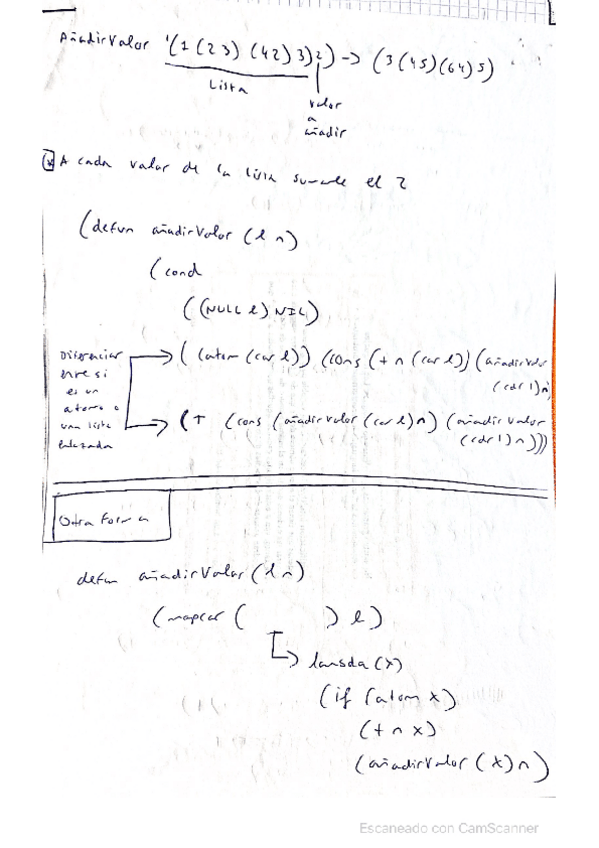 AñadirValor '(1 (2 3) (4 2) 3) 2) -> (3 (4 5) (6 4) 5)
Lista
valor
a
añadir
A cada valor de la lista sumale el 2
(defun añadirValor (l n)
(cond
((NULL l) NIL)
Diferenciar
entre si
es un
atomo o
una lista
enlazada
( (atom (car l)) (cons (+ n (car l)) (añadirValor
(cdr l) n)
(T (cons (añadirValor (car l) n) (añadirValor
(cdr l) n)))
Otra forma
defun añadirValor (l n)
(mapcar ( ) l)
lamsda (x)
(if (atom x)
(+ n x)
(añadirValor (x) n)
Escaneado con CamScanner